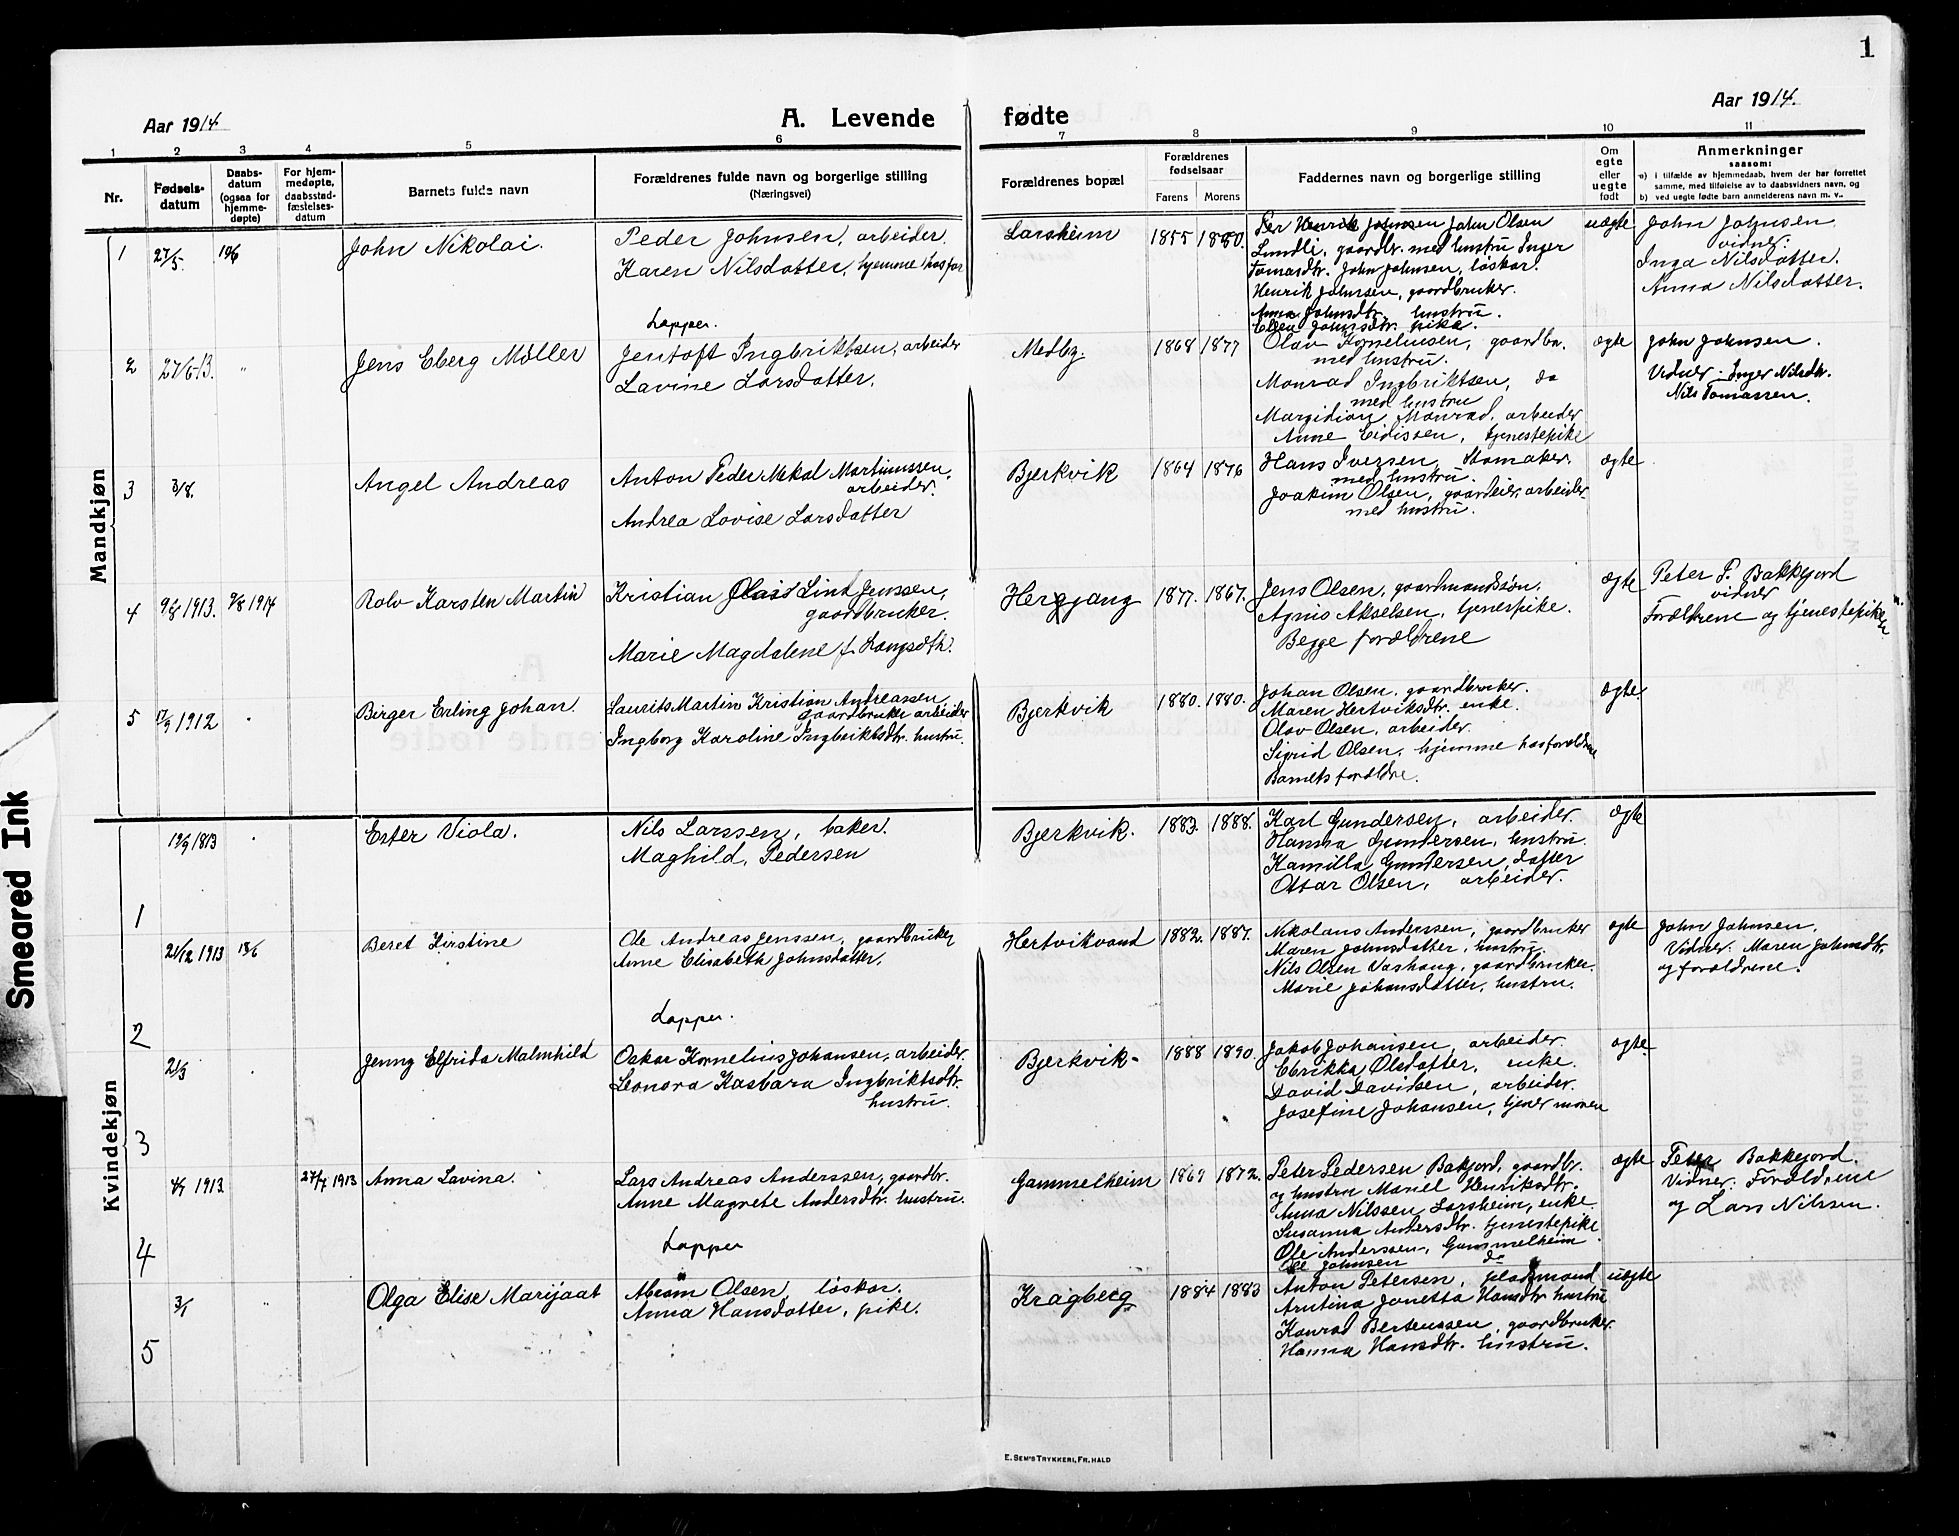 1
Aar 1914
A. Levende fødte
Aar 1914.
1 2 3 4 5 6 7 8 9 10 11
Nr.
Fødsels-
datum
Daabs-
datum
(ogsaa for
hjemme-
døpte)
For hjem-
medøpte,
daabsstad-
fæstelses-
datum
Barnets fulde navn
Forældrenes fulde navn og borgerlige stilling
(Næringsvei)
Forældrenes bopæl
Forældrenes
fødselsaar
Farens Morens
Faddernes navn og borgerlige stilling
Om
egte
eller
uegte
født
Anmerkninger
saasom:
a) i tilfælde av hjemmedaab, hvem der har forrettet
samme, med tilføielse av to daabsvidners navn, og
b) ved uegte fødte barn anmelderens navn m. v..
Mandkjøn
1 27/5. 10/6 John Nikolai.
Peder Johnsen, arbeider.
Karen Nilsdatter, hjemme hos far
Lapper.
Larsheim 1855 1880.
Per Henrik Johnsen John Olsen
Lundli, gaardbr. med hustru Inger
Tomasdtr. John Johnsen, løskar.
Henrik Johnsen, gaardbruker.
Anna Johnsdtr. hustru.
Ellen Johnsdtr. pike.
uægte
John Johnsen
vidner:
Inga Nilsdatter.
Anna Nilsdatter.
2 27/6-13. " Jens Eberg Møller
Jentoft Ingbriktsen, arbeider
Lavine Larsdatter.
Medby. 1868 1877
Olav Kornelinsen, gaardbr.
med hustru.
Monrad Ingbriktsen, do
med hustru
Margidion Monrad, arbeider
Anne Eidissen, tjenestepike
ægte
John Johnsen.
Vidner: Inger Nilsdtr.
Nils Tomassen.
3 3/8. Angel Andreas
Anton Peder Mekal Martinussen
arbeider.
Andrea Lovise Larsdatter
Bjerkvik 1864 1876
Hans Iversen, Skomaker.
med hustru.
Joakim Olsen, gaardeier, arbeider
med hustru.
ægte
4 9/8 1913. 9/8 1914 Rolv Karsten Martin
Kristian Olais Lind Jenssen,
gaardbruker.
Marie Magdalene f. Hansdtr.
Hergjang 1877. 1867.
Jens Olsen, gaardmandsøn.
Agnis Akselsen, tjenespike.
Begge forældrene
ægte
Peter P. Bakkejord
vidner
Forældrene og tjenestepiken
5 17/9 1912 " Birger Erling Johan
Laurits Martin Kristian Andreassen
gaardbruker arbeider
Ingborg Karoline Ingbriktsdtr. hustru.
Bjerkvik 1880. 1880.
Johan Olsen, gaardbruker.
Maren Hertviksdtr. enke.
Olav Olsen, arbeider.
Sigrid Olsen, hjemme hos foreldre
Barnets foreldre.
ægte
Kvindekjøn
1 19/9 1813 " Ester Viola.
Nils Larssen, baker.
Maghild, Pedersen
Bjerkvik. 1883. 1888.
Karl Gundersen, arbeider.
Hanna Gundersen, hustru.
Kamilla Gundersen, datter
Ottar Olsen, arbeider.
ægte
2 21/12 1913 18/6 Beret Kirstine
Ole Andreas Jenssen, gaardbruker
Anne Elisabeth Johnsdatter.
Lapper.
Hertvikvand 1882. 1887.
Nikolaus Andersen, gaardbruker
Maren Johnsdatter, hustru.
Nils Olsen Vashaug, gaardbruker.
Marie Johansdatter, hustru.
ægte
John Johnsen.
Vidner: Maren Johnsdtr.
og forældrene.
3 21/3 " Jenny Elfrida Malmhild
Oskar Kornelius Johansen, arbeider.
Leonora Kasbara Ingbriktsdtr.
hustru.
Bjerkvik- 1888 1890.
Jakob Johansen, arbeider.
Ebrikka Olsdatter, enke.
David Davidsen, arbeider.
Josefine Johansen, tjener moren
ægte
4 4/7 1913 27/7 1913 Anna Lavina.
Lars Andreas Anderssen, gaardbr.
Anne Magrete Andersdtr. hustru.
Lapper
Gammelheim 1869 1872.
Peter Pedersen Bakjord, gaardbr.
og hustru Mariel Henriksdtr.
Anna Nilssen Larsheim, enke.
Susanna Andersdtr. tjenestepike
Ole Anderssen, Gammelheim.
Ole Johnsen do
ægte
Peter Bakkejord.
Vidner: Forældrene
og Lars Nilssen.
5 3/1 " Olga Elise Marijaat
Abram Olsen, løskar.
Anna Hansdatter, pike.
Kragberg 1884 1883
Anton Petersen, pladsmand
Arntina Jonetta Hansdtr hustru
Konrad Bertenssen, gaardbruker.
Hanna Hansdtr. hustru.
uegte
E. SEM'S TRYKKERI, FR. HALD
Smeared Ink